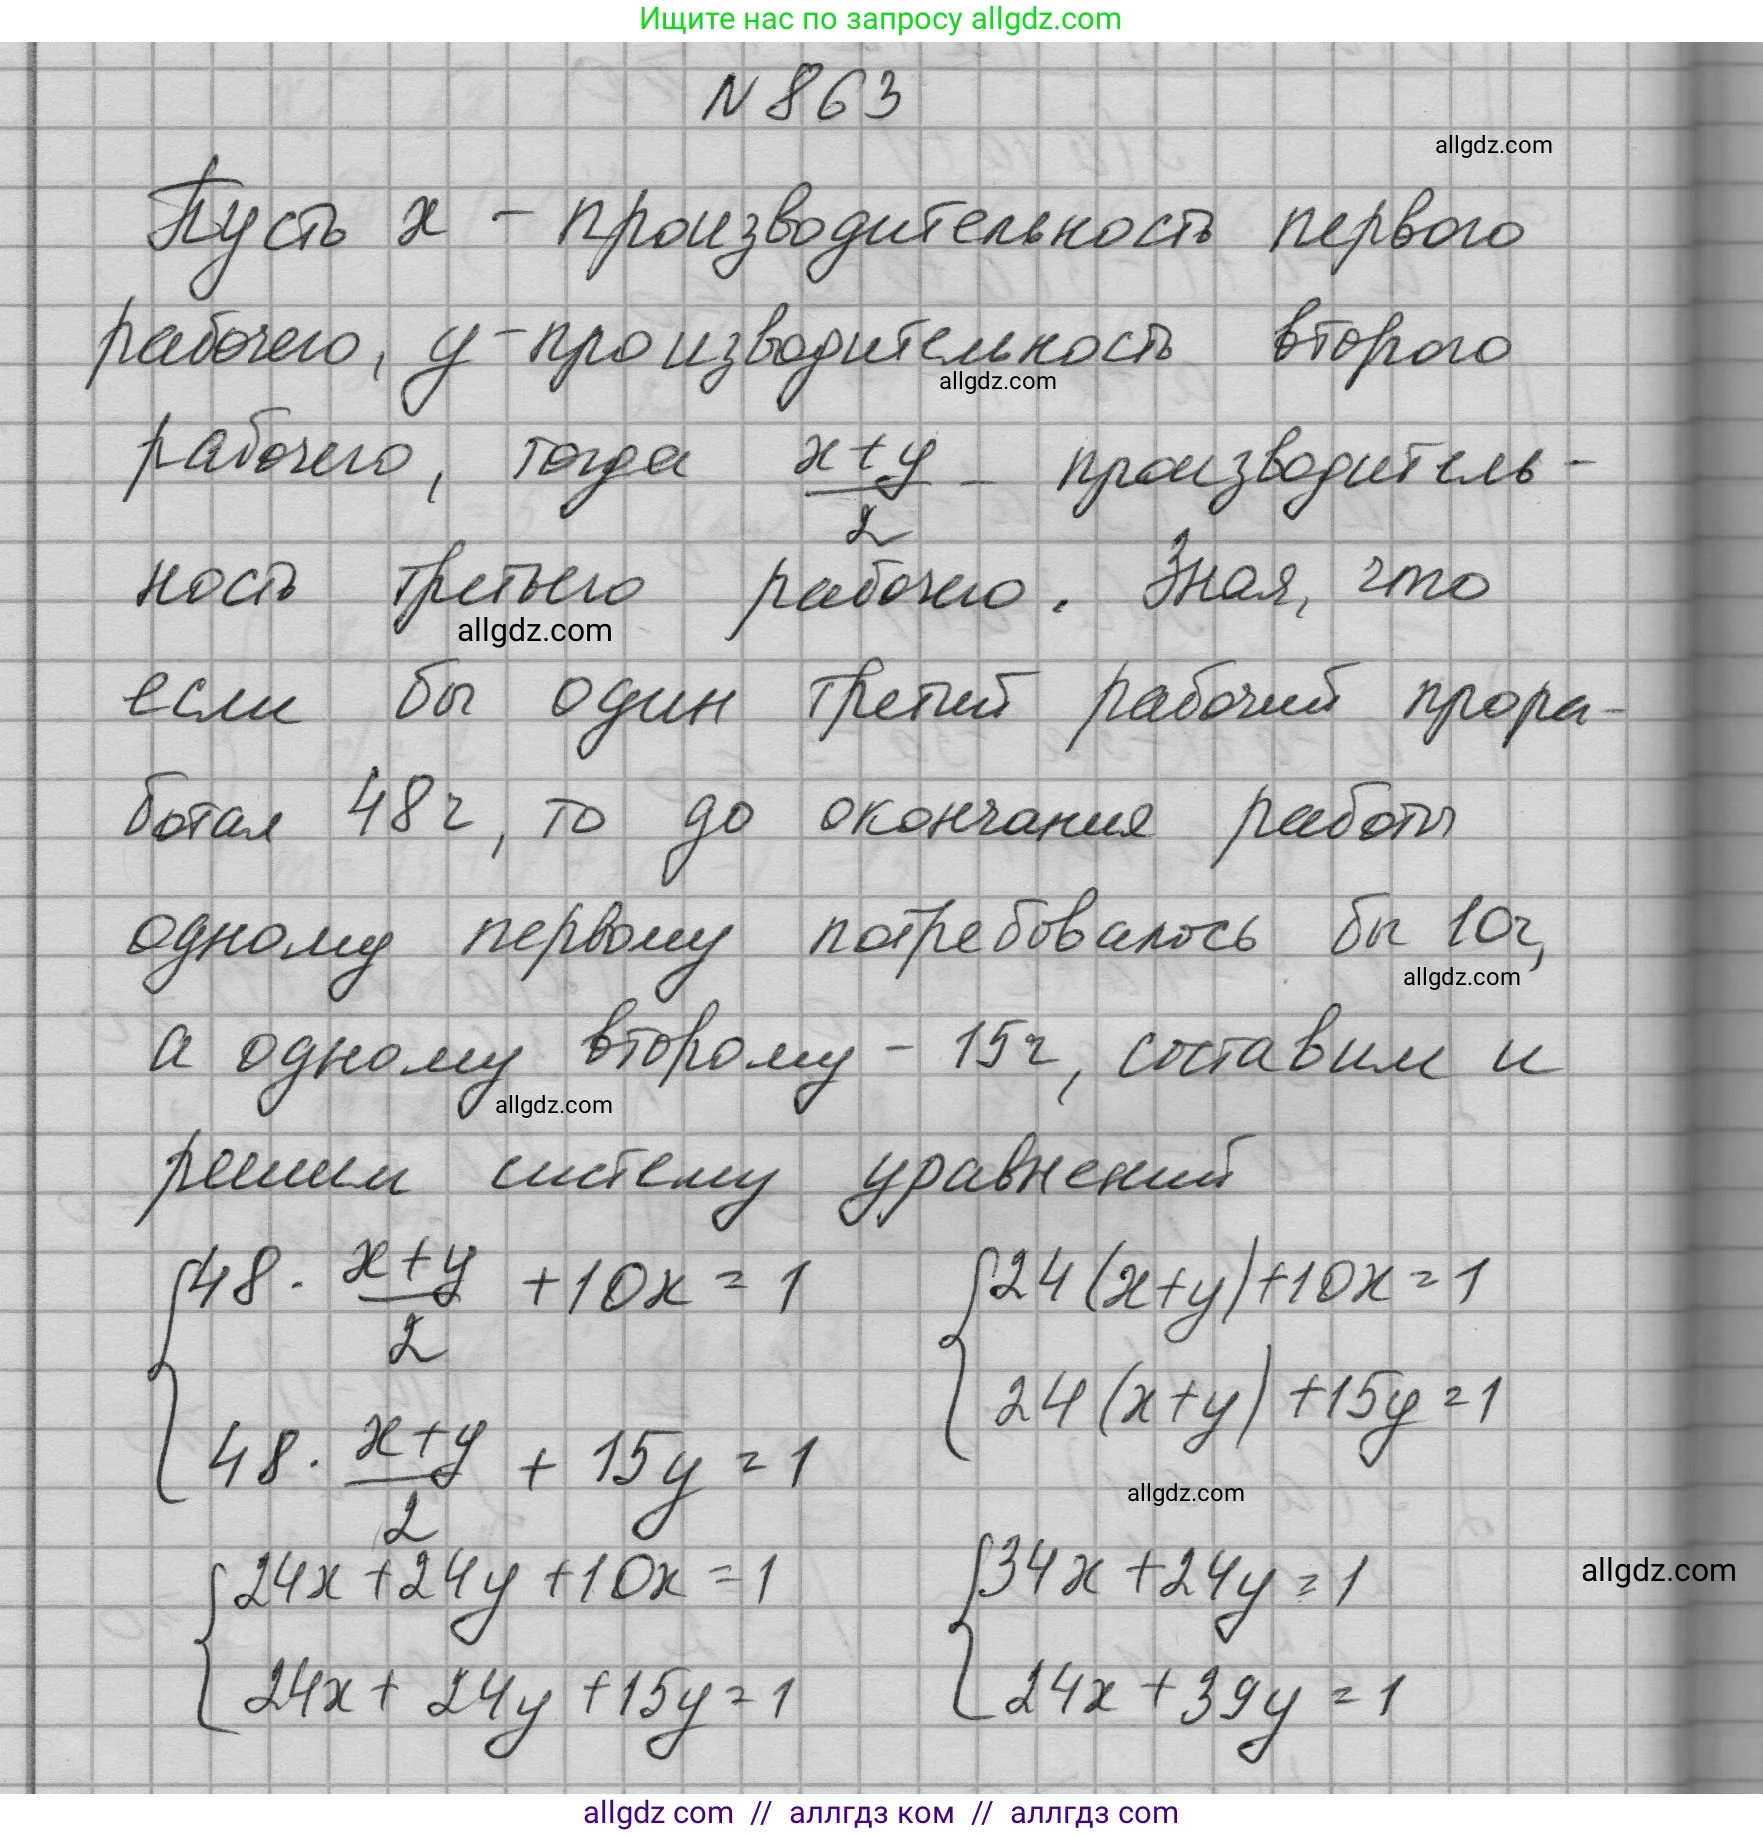 Ищите нас по запросу allgdz.com
N 863
allgdz.com
Пусть x - производительность первого
рабочего, y - производительность второго
allgdz.com
рабочего, тогда (x+y)/2 - производитель-
ность третьего рабочего. Зная, что
allgdz.com
если бы один третий рабочий прора-
ботал 48 ч, то до окончания работы
одному первому потребовалось бы 10ч,
allgdz.com
а одному второму - 15ч, составим и
allgdz.com
решим систему уравнений
{48 · (x+y)/2 + 10x = 1
48 · (x+y)/2 + 15y = 1
{24(x+y)+10x=1
24(x+y)+15y=1
allgdz.com
{24x+24y+10x=1
24x+24y+15y=1
{34x+24y=1
24x+39y=1
allgdz.com
allgdz com // аллгдз ком // аллгдз com